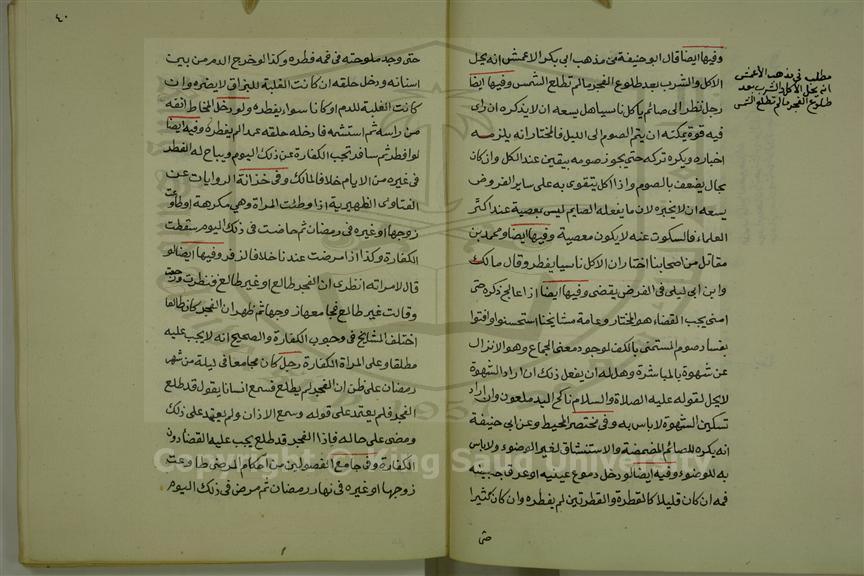 وفيها ايضا قال ابو حنيفة في مذهب ابي بكر الاعمش انه يحل
الاكل والشرب بعد طلوع الفجر ما لم تطلع الشمس وفيها ايضا
رجل نظر الى صائم ياكل ناسيا هل يسعه ان لا يذكره ان راى
فيه قوة يمكنه ان يتم الصوم الى الليل فالمختار انه يلزمه
اخباره ويكره تركه حتى يجوز صومه بيقين عند الكل وان كان
بحال يضعف بالصوم واذا اكل يتقوى به على سائر الفروض
يسعه ان لا يخبره لان ما يفعله الصايم ليس بمعصية عند اكثر
العلماء فالسكوت عنه لا يكون معصية وفيها ايضا ومحمد بن
مقاتل من اصحابنا اختار ان الاكل ناسيا يفطر وقال مالك
وابن ابي ليلى في الفرض يقضى وفيها ايضا اذا عالج ذكره حتى
امنى يجب القضاء هو المختار وعامة مشايخنا استحسنوا وافتوا
بفساد صوم المستمنى بالكف لوجود معنى الجماع وهو الانزال
عن شهوة بالمباشرة وهل له ان يفعل ذلك ان اراد الشهوة
لا يحل لقوله عليه الصلاة والسلام ناكح اليد ملعون وان اراد
تسكين الشهوة لا باس به وفي مختصر المحيط وعن ابي حنيفة
انه يكره للصائم المضمضة والاستنشاق لغير الوضوء ولا باس
به للوضوء وفيه ايضا لو دخل دموع عينيه او عرق جبينه
فمه ان كان قليلا كالقطرة والقطرتين لم يفطره وان كان كثيرا
حتى
مطلب في مذهب الاعمش
انه يحل الاكل والشرب بعد
طلوع الفجر ما لم تطلع الشمس
٤٠
حتى وجد ملوحته في فمه فطره وكذا لو خرج الدم من بين
اسنانه ودخل حلقه ان كانت الغلبة للبزاق لا يضره وان
كانت الغلبة للدم او كانا سواء يفطره ولو دخل المخاط انفه
من راسه ثم استشمه فادخله حلقه عمدا لم يفطره وفيه ايضا
لو افطر ثم سافر تجب الكفارة عن ذلك اليوم ويباح له الفطر
في غيره من الايام خلافا لمالك وفي خزانة الروايات عن
الفتاوى الظهيرية اذا وطئت المراة وهي مكرهة او طاوعت
زوجها او غيره في رمضان ثم حاضت في ذلك اليوم سقطت
الكفارة وكذا اذا مرضت عندنا خلافا لزفر وفيها ايضا لو
قال لامراته انظرى ان الفجر طالع او غير طالع فنظرت ورجعت
وقالت غير طالع فجامعها زوجها ثم ظهر ان الفجر كان طالعا
اختلف المشايخ في وجوب الكفارة والصحيح انه لا يجب عليه
مطلقا وعلى المراة الكفارة رجل كان مجامعا في ليلة من شهر
رمضان على ظن ان الفجر لم يطلع فسمع انسانا يقول قد طلع
الفجر فلم يعتمد على قوله وسمع الاذان ولم يعتمد على ذلك
ومضى على حاله فاذا الفجر قد طلع يجب عليه القضاء دون
الكفارة وفي جامع الفصولين من احكام المرضى طاوعت
زوجها او غيره في نهار رمضان ثم مرض في ذلك اليوم
Copyright © King Saud University